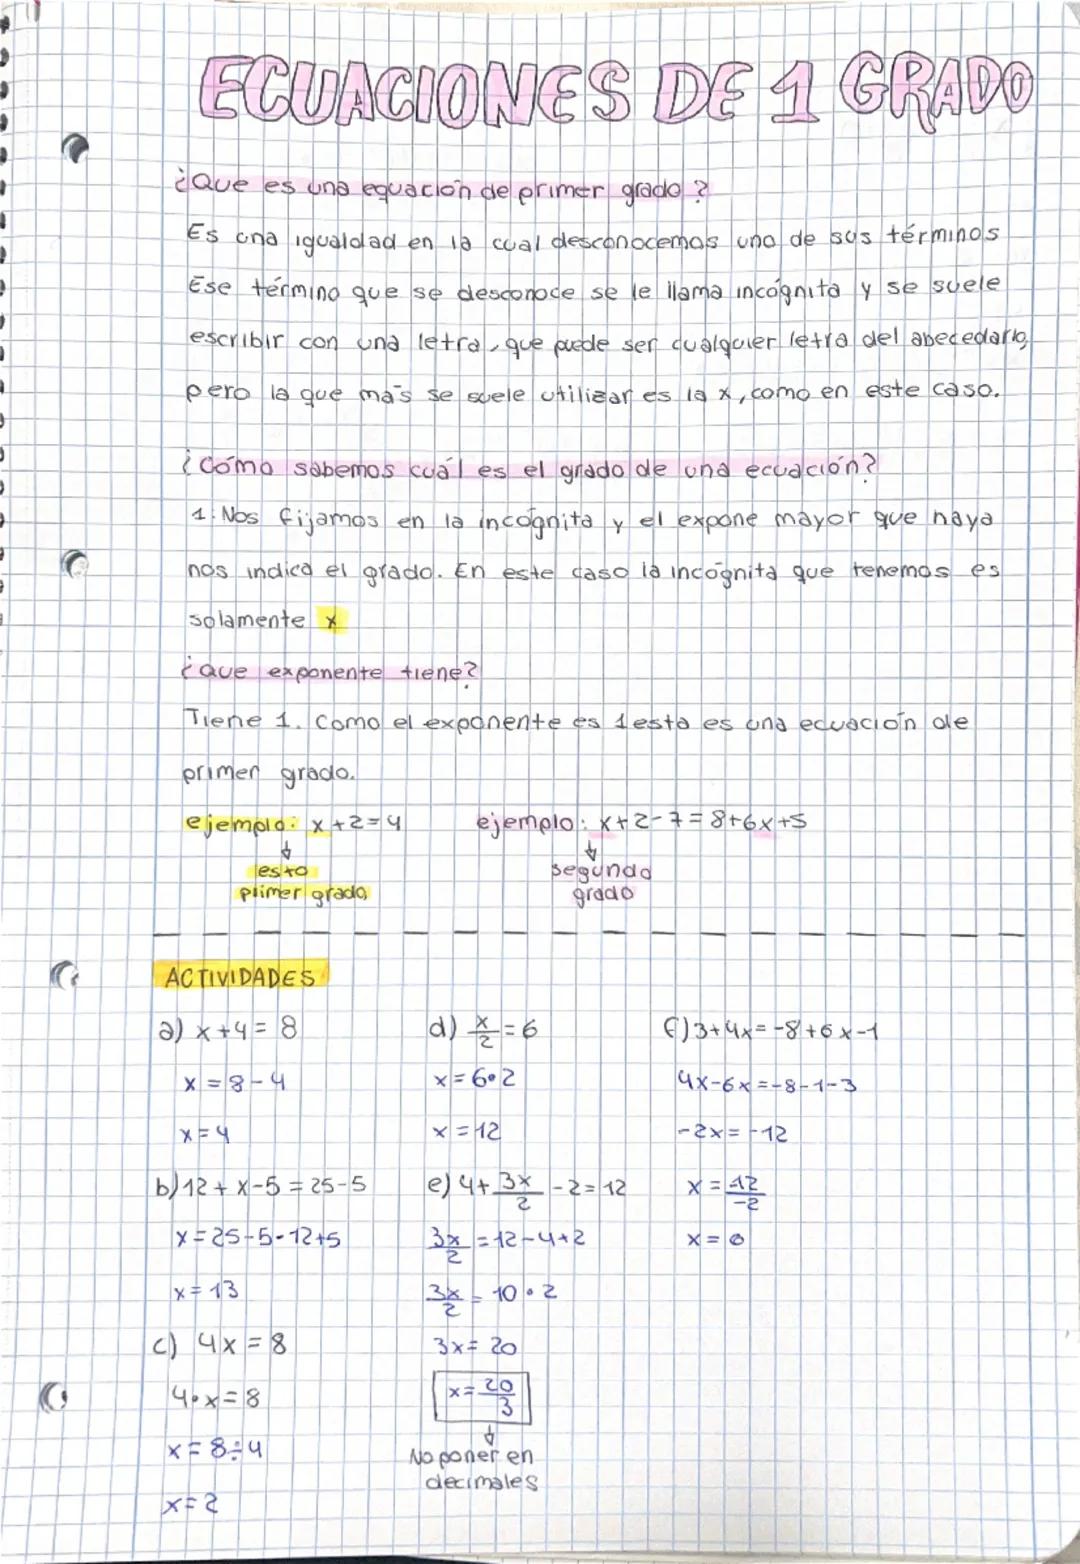 ECUACIONES DE 1 GRADO
¿Que es una equación de primer grado?
Es una igualdad en la cual desconocemos uno de sus términos
Ese término que se desconoce se le llama incógnita y se suele
escribir con una letra, que puede ser cualquier letra del abecedario,
pero la que más se suele utilizar es la x, como en este caso.
¿Cómo sabemos cuál es el grado de una ecuación?
1. Nos fijamos en la incógnita y el expone mayor que haya
nos indica el grado. En este caso la incógnita que tenemos es
solamente x
¿que exponente tiene?
Tiene 1. Como el exponente es 1 esta es una ecuación de
primer grado.
ejemplo: x+2=4
↓
esto
primer grado
ejemplo: x+2-7=8+6x+5
↓
segundo
grado
ACTIVIDADES
a) x+4=8
x=8-4
x=4
b) 12+x-5=25-5
x=25-5-12+5
x=13
c) 4x=8
4·x=8
x=8÷4
x=2
d) x/2=6
x=6·2
x=12
e) 4+3x/2-2=12
3x/2=12-4+2
3x/2=10·2
3x=20
x=20/3
↓
No poner en
decimales
f) 3+4x=-8+6x-1
4x-6x=-8-1-3
-2x=-12
x=-12/-2
x=6